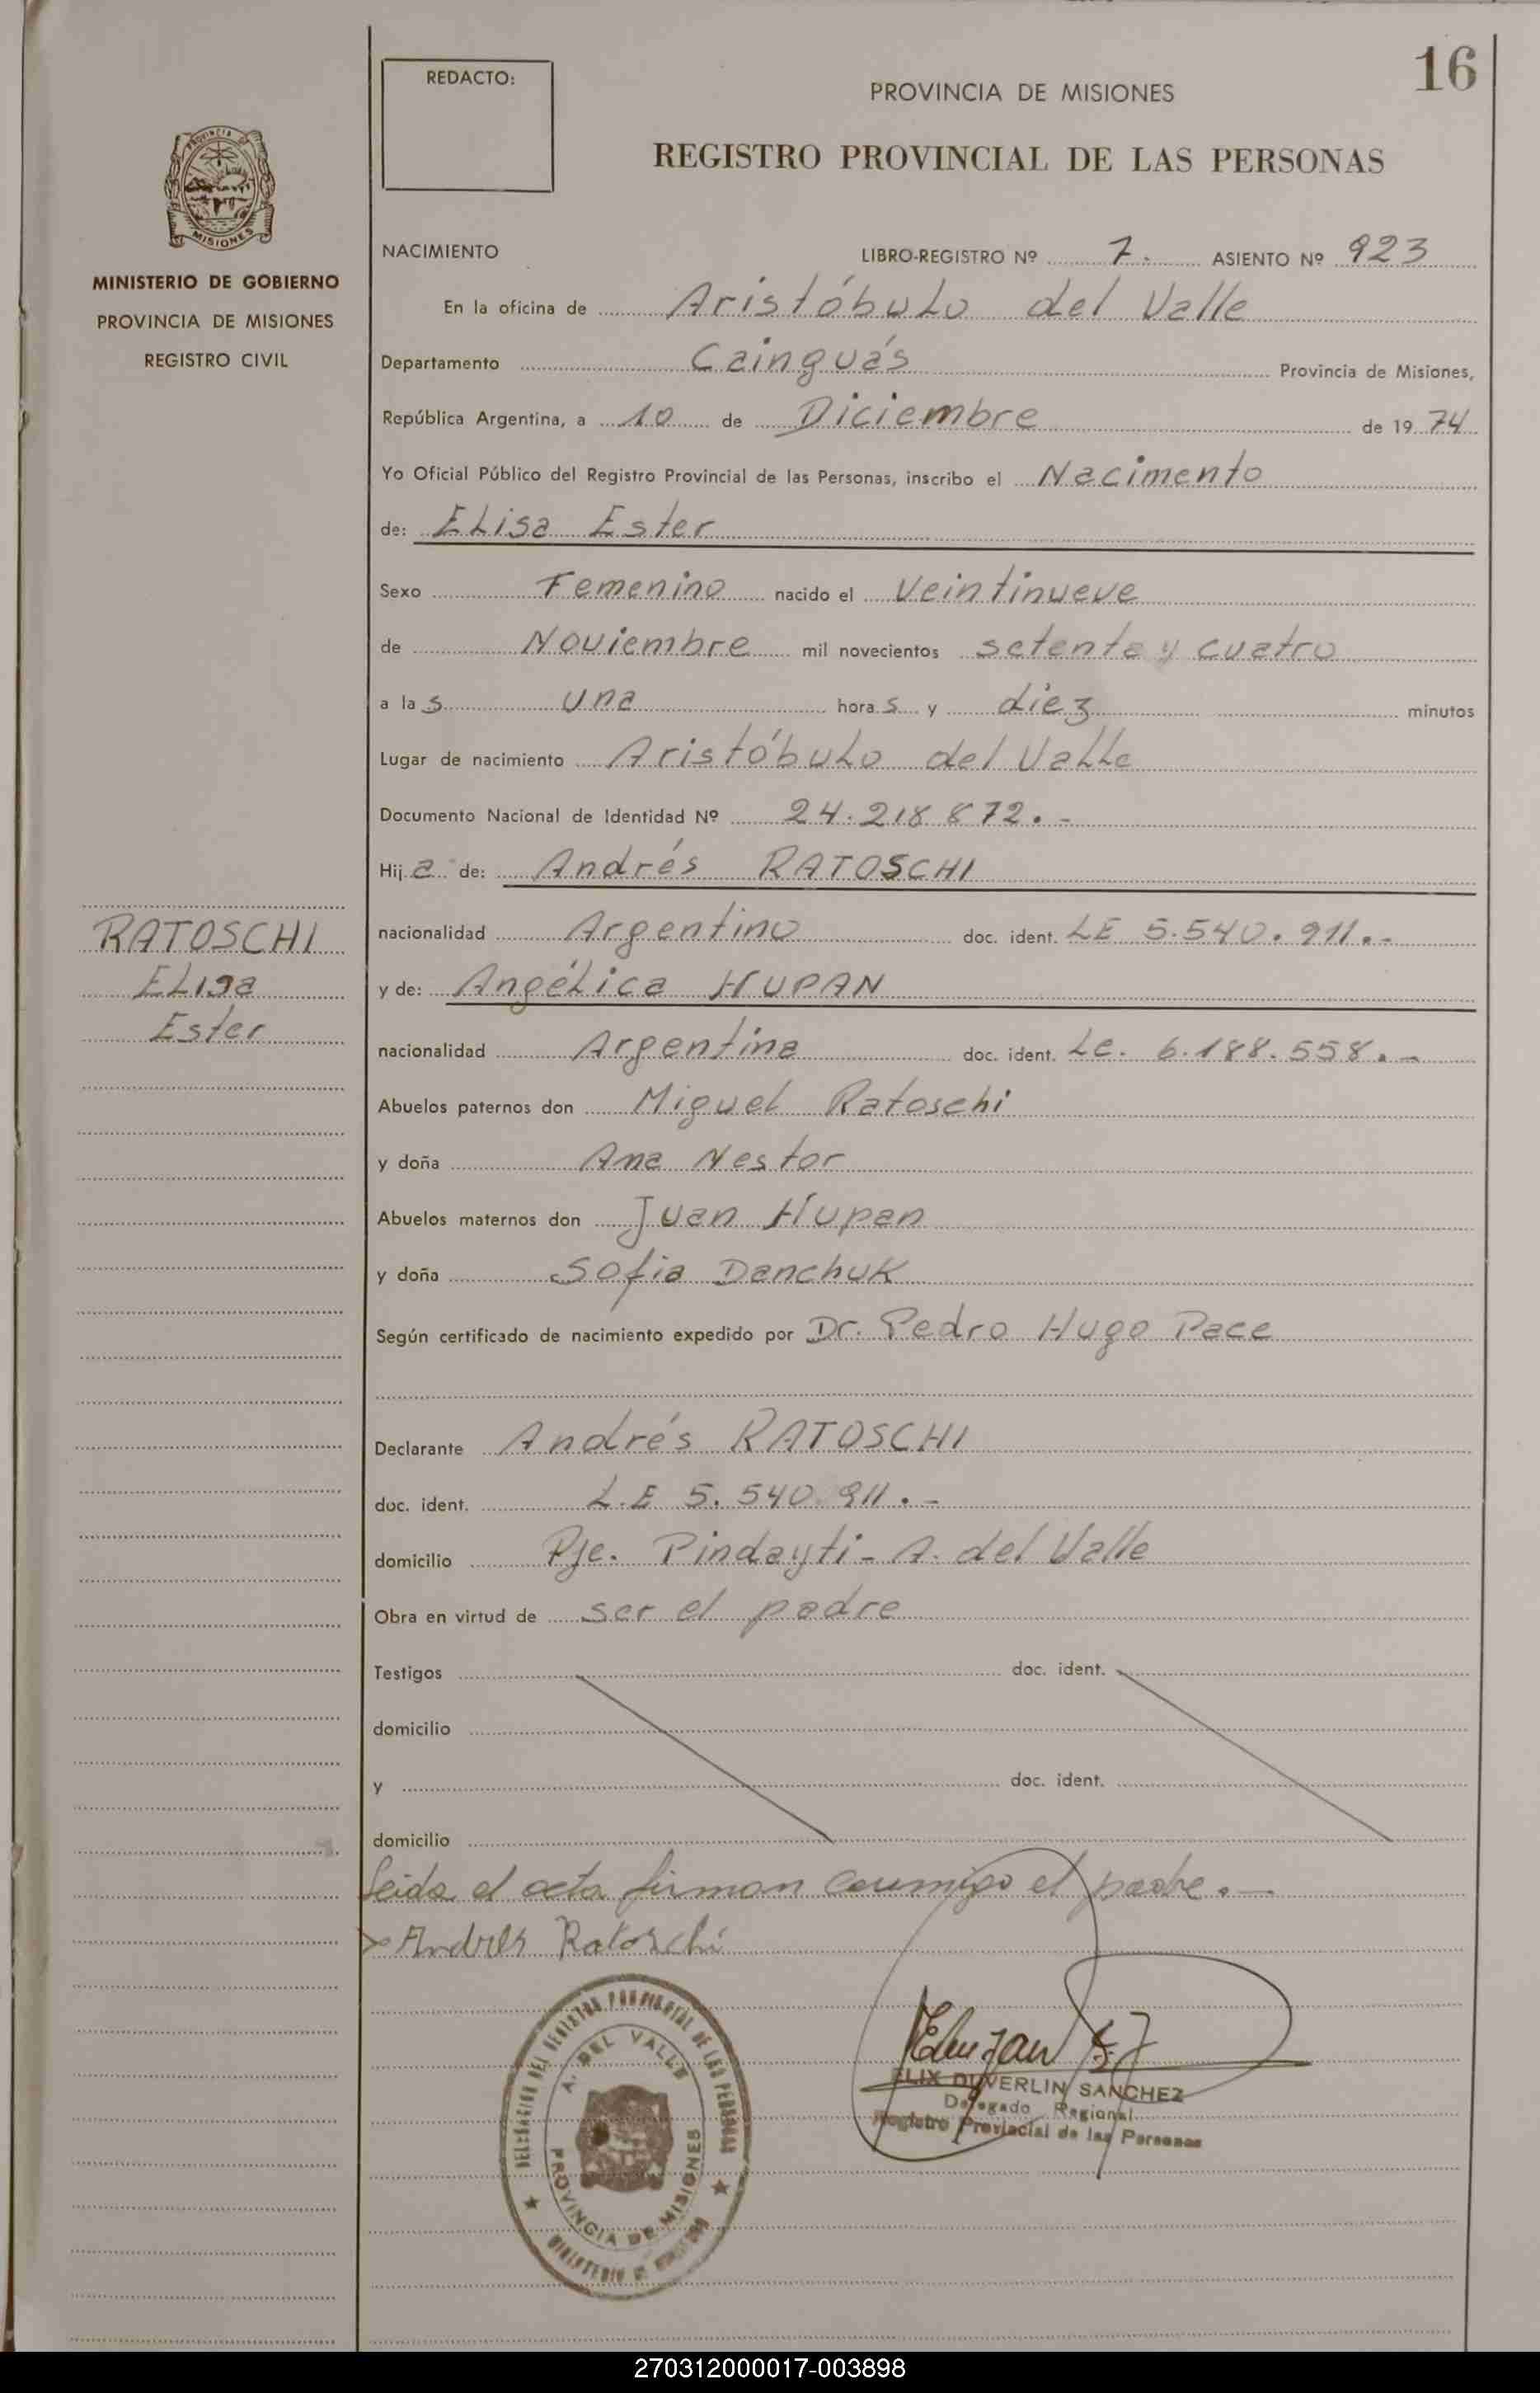 16
REDACTO:
PROVINCIA DE MISIONES
REGISTRO PROVINCIAL DE LAS PERSONAS
PROVINCIA DE
MISIONES
MINISTERIO DE GOBIERNO
PROVINCIA DE MISIONES
REGISTRO CIVIL
NACIMIENTO LIBRO-REGISTRO Nº 7. ASIENTO Nº 923
En la oficina de Aristóbulo del Valle
Departamento Cainguás Provincia de Misiones,
República Argentina, a 10 de Diciembre de 1974
Yo Oficial Público del Registro Provincial de las Personas, inscribo el Nacimento
de: Elisa Ester
Sexo Femenino nacido el Veintinueve
de Noviembre mil novecientos setenta y cuatro
a las una horas y diez minutos
Lugar de nacimiento Aristóbulo del Valle
Documento Nacional de Identidad Nº 24.218.872.-
Hija de: Andrés RATOSCHI
RATOSCHI
Elisa
Ester
nacionalidad Argentino doc. ident. LE 5.540.911.-
y de: Angélica HUPAN
nacionalidad Argentina doc. ident. Lc. 6.188.558.-
Abuelos paternos don Miguel Ratoschi
y doña Ana Nestor
Abuelos maternos don Juan Hupan
y doña Sofia Danchuk
Según certificado de nacimiento expedido por Dr. Pedro Hugo Pace
Declarante Andrés RATOSCHI
doc. ident. L.E 5.540.911.-
domicilio Pje. Pindayti - A. del Valle
Obra en virtud de ser el padre
Testigos doc. ident.
domicilio
y doc. ident.
domicilio
Leida el acta firman conmigo el padre.-
Andres Ratoschi
DEL REGISTRO PROVINCIAL DE LAS PERSONAS
A. DEL VALLE
PROVINCIA DE MISIONES
MINISTERIO DE GOBIERNO
DUVERLIN SANCHEZ
Delegado Regional
Registro Provincial de las Personas
270312000017-003898